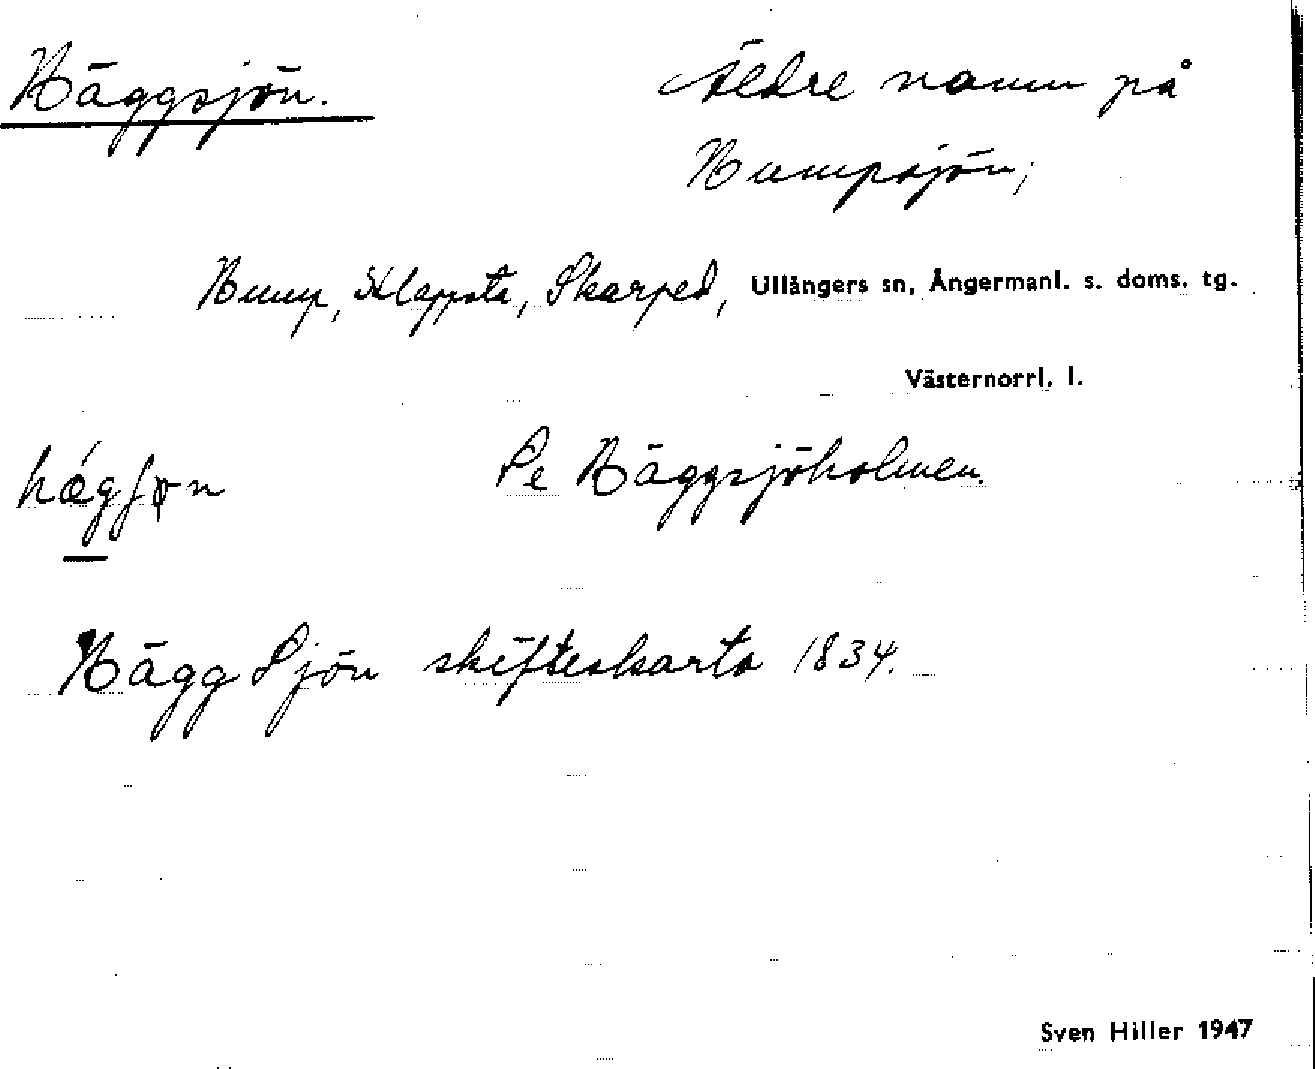 Häggsjön.
Äldre namn på
Humpsjön;
Hump, Klappsta, Skarped, Ullångers sn, Ångermanl. s. doms. tg.
Västernorrl. l.
hǽgʃøn Se Häggsjöholmen.
Hägg Sjön skifteskarta 1834.
Sven Hiller 1947